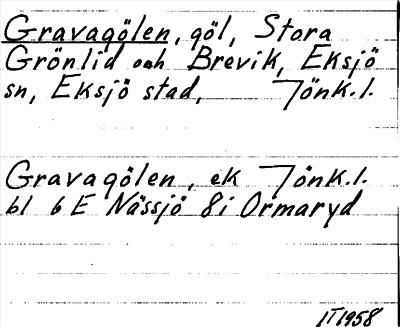 Gravagölen, göl, Stora
Grönlid och Brevik, Eksjö
sn, Eksjö stad, Jönk.l.
Gravagölen, ek Jönk.l.
bl 6 E Nässjö 8i Ormaryd
IT1958